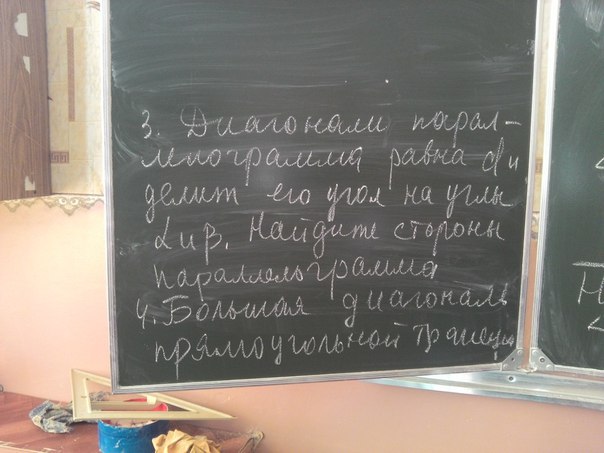 3. Диагонали парал-
лелограмма равна d и
делит его угол на углы
α и β. Найдите стороны
параллелограмма
4. Большая диагональ
прямоугольной трапеци
Н